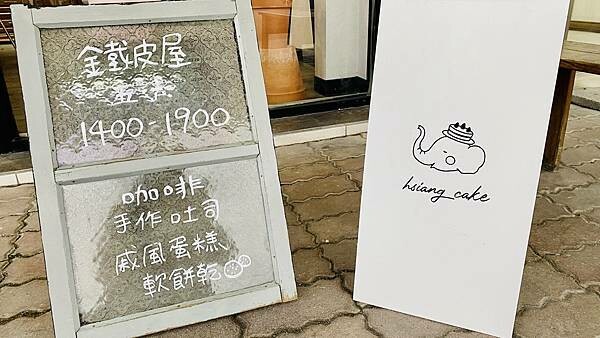 金戲皮屋
1400-1900
咖啡
手作吐司
戚風蛋糕
軟餅乾
hsiang cake